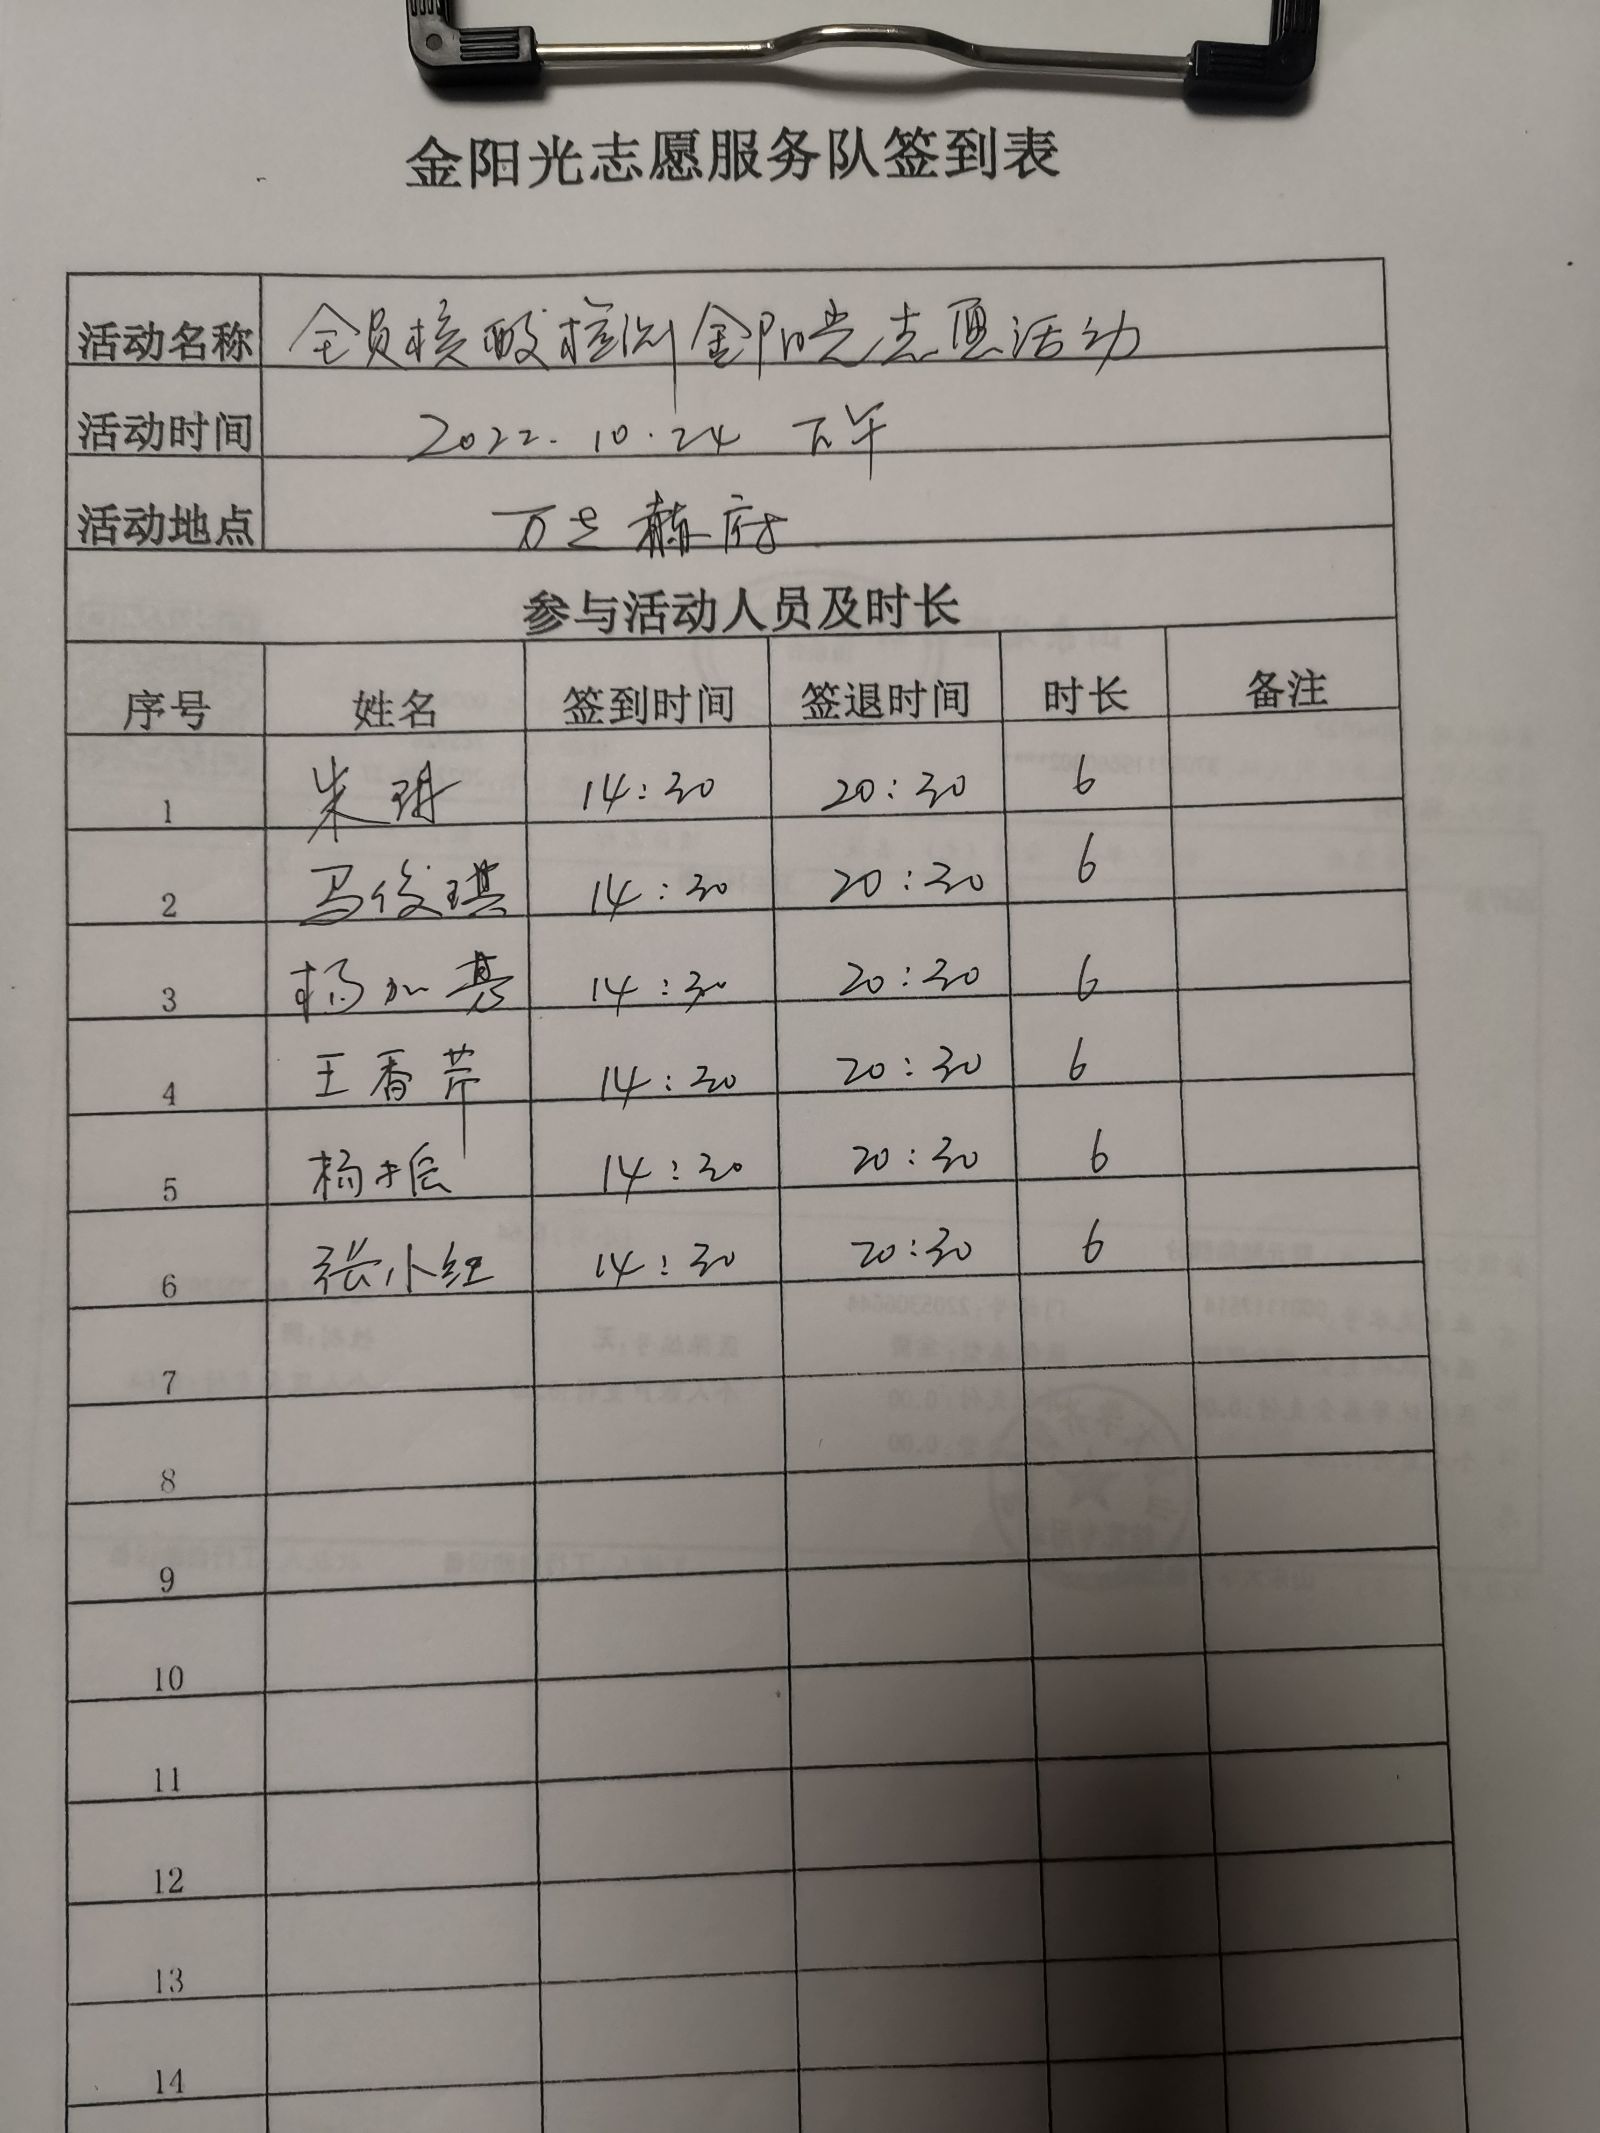 金阳光志愿服务队签到表
活动名称 全员核酸检测金阳光志愿活动
活动时间 2022.10.24 下午
活动地点 万兰赫府
参与活动人员及时长
序号 姓名 签到时间 签退时间 时长 备注
1 朱玥 14:30 20:30 6
2 马俊琪 14:30 20:30 6
3 杨加 14:30 20:30 6
4 王香芹 14:30 20:30 6
5 杨振 14:30 20:30 6
6 张小红 14:30 20:30 6
7
8
9
10
11
12
13
14